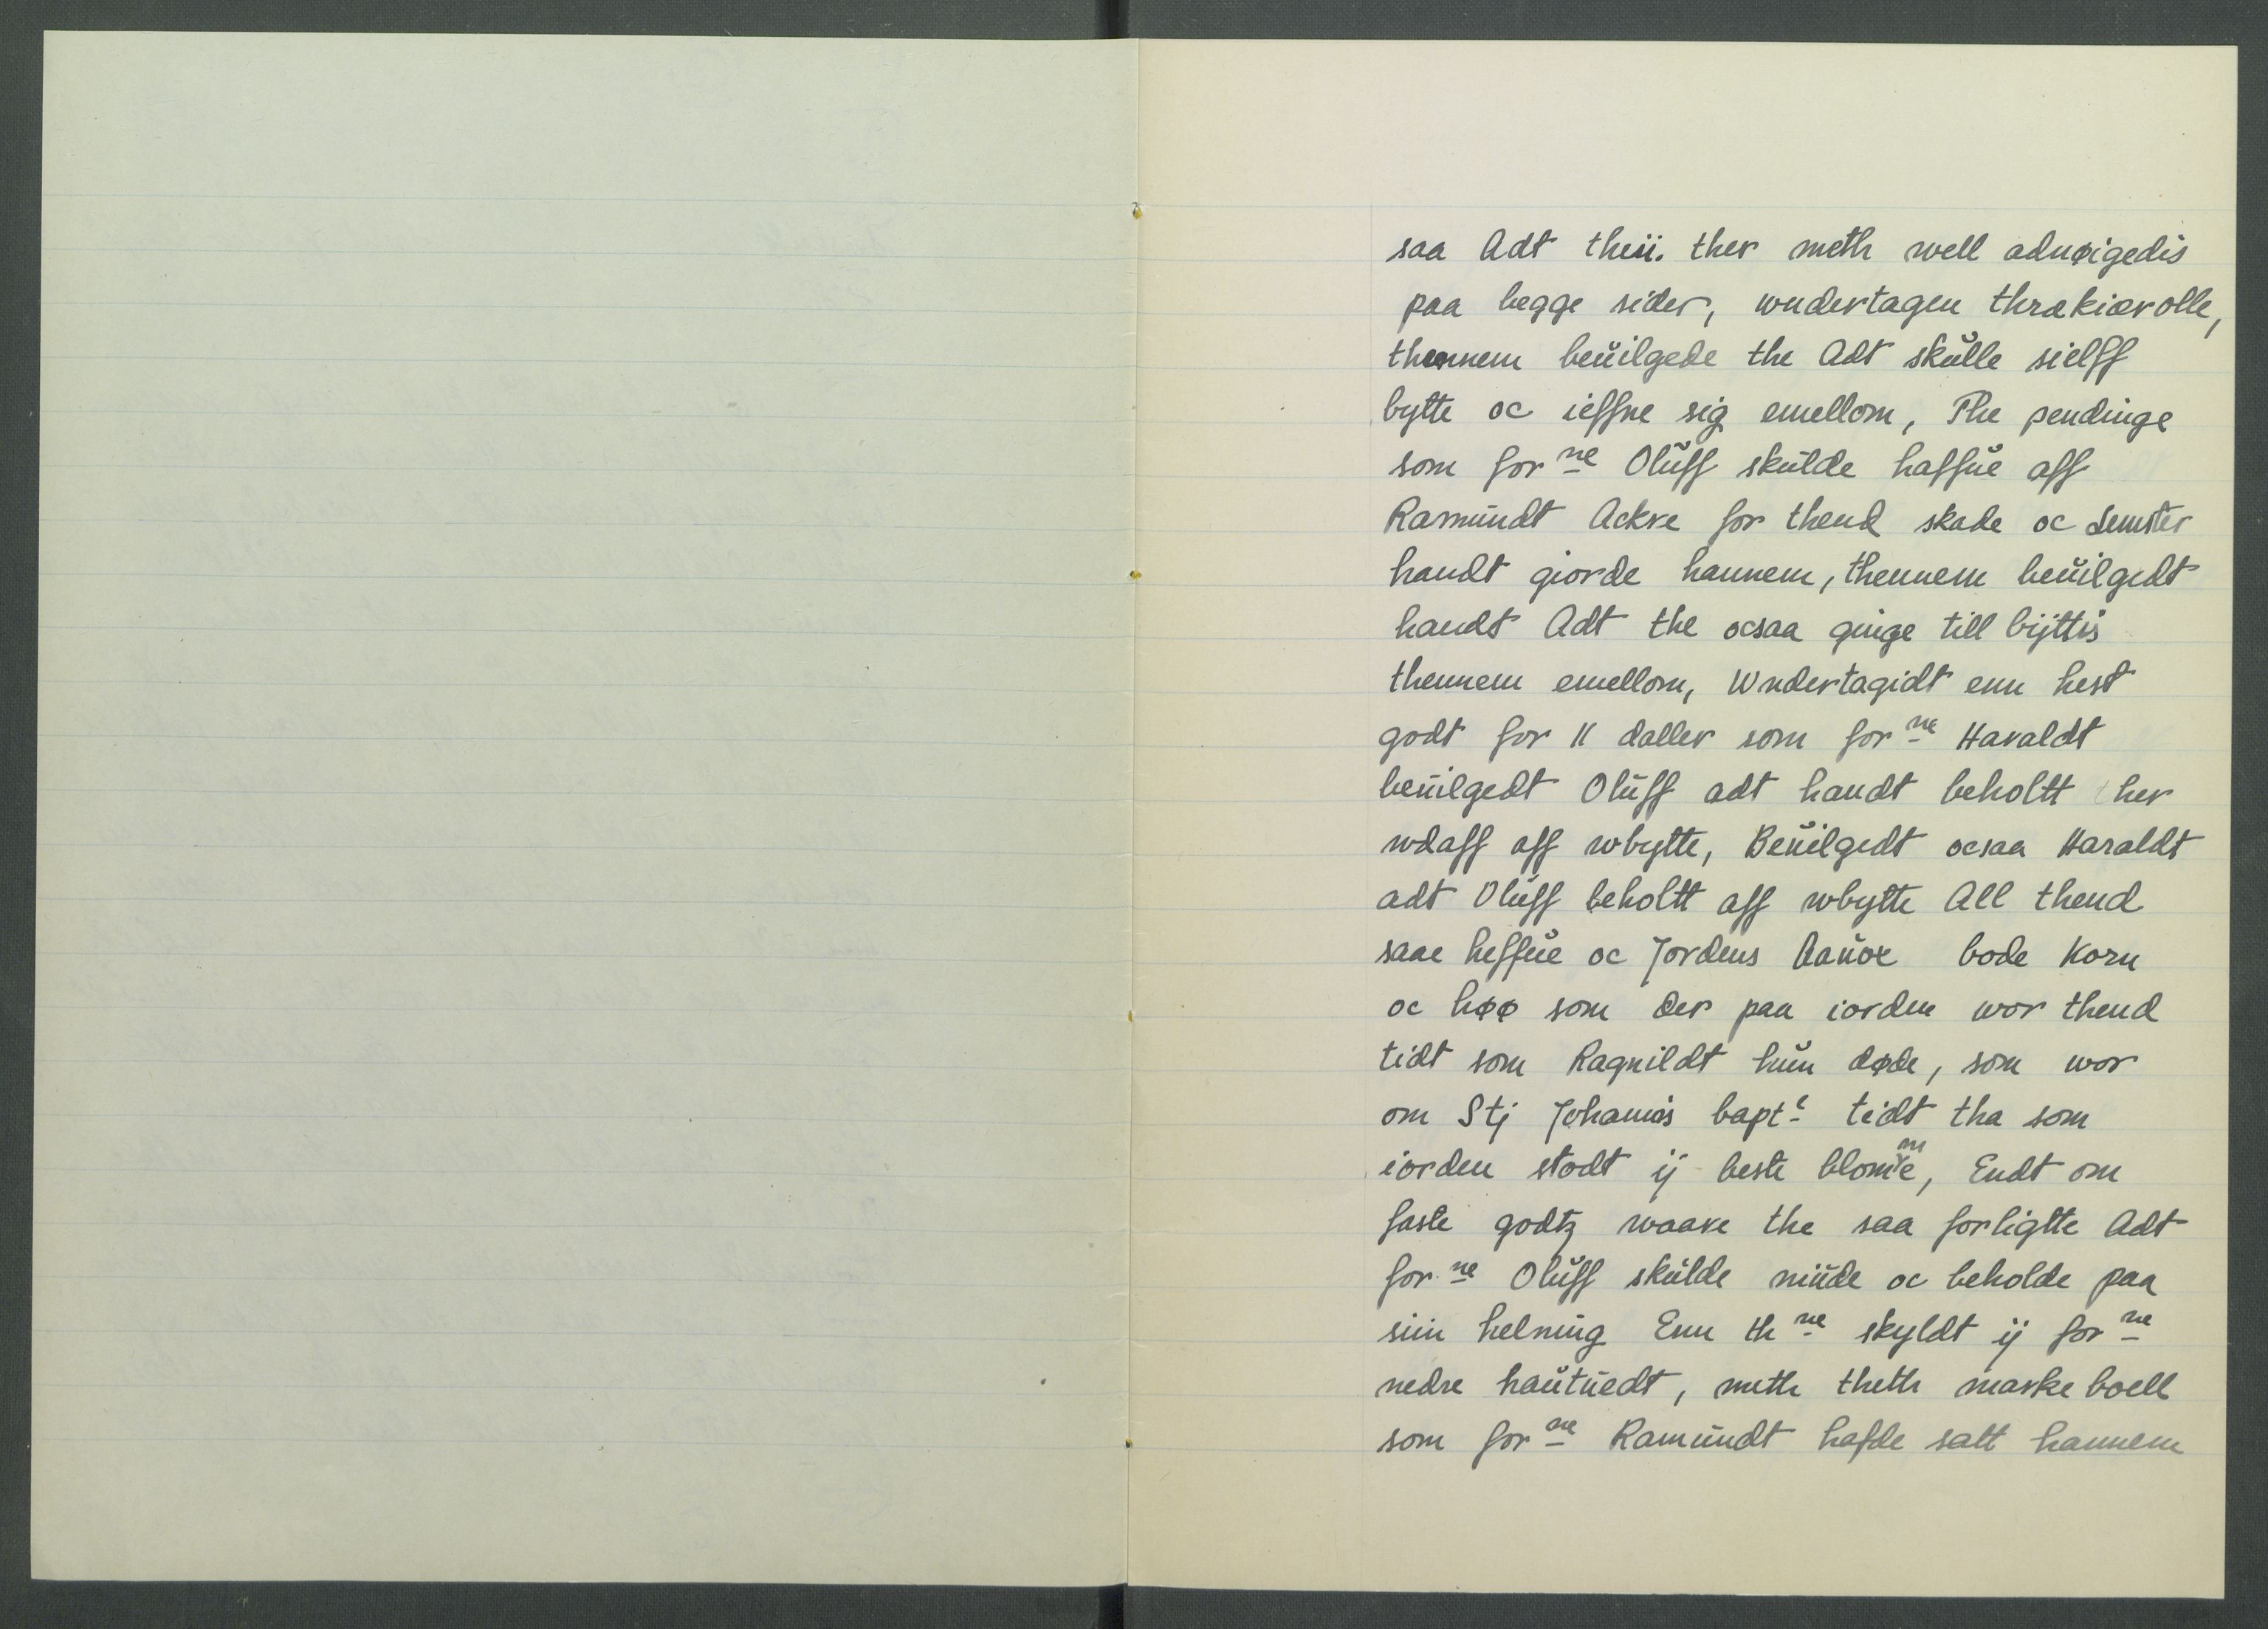 saa Adt theii. ther meth well adnøigedis
paa begge sider, wndertagen thrækiærolle,
thennem beuilgede the Adt skŭlle sielff
bytte oc ieffne sig emellom, The pendinge
som for ne Olŭff skŭlde haffŭe aff
Ramŭndt Ackre for thend skade oc
handt giorde hannem, thennem beŭilgedt
handt Adt the ocsaa ginge till bijttis
thennem emellom, Wndertagidt enn hest
godt for 11 daller som for ne Haraldt
beŭilgedt Olŭff adt handt beholtt ther
wdaff aff wbytte, Beŭilgedt ocsaa Haraldt
adt Olŭff beholtt aff wbytte All thend
saae heffŭe oc Jordens Aaŭox bode Korn
oc høø som der paa iorden wor thend
tidt som Ragnildt hŭn døde, som wor
om Stj Johannis bapte tidt tha som
iorden stodt ij beste blomme, Endt om
faste godtz waare the saa forligtte Adt
for ne Olŭff skŭlde niŭde oc beholde paa
siin helning Enn th ne skyldt ij for ne
nedre haŭtŭedt, meth theth marke boell
som for ne Ramŭndt hafde satt hannem